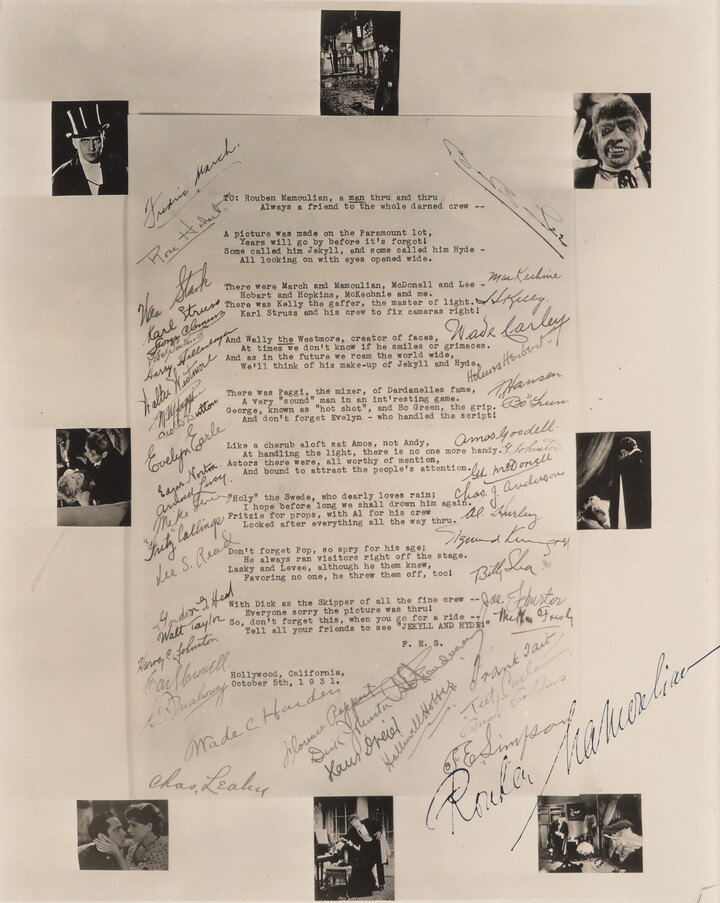 Fredric March.
TO: Rouben Mamoulian, a man thru and thru
Always a friend to the whole darned crew --
Rose Hobart.
A picture was made on the Paramount lot,
Years will go by before it's forgot!
Some called him Jekyll, and some called him Hyde -
All looking on with eyes opened wide.
There were March and Mamoulian, McDonell and Lee -
Hobart and Hopkins, McKechnie and me.
There was Kelly the gaffer, the master of light.
Karl Struss and his crew to fix cameras right!
Stark
Karl Struss
Wade Carley
Harry Hallenberger
And Wally the Westmore, creator of faces,
At times we don't know if he smiles or grimaces.
And as in the future we roam the world wide,
We'll think of his make-up of Jekyll and Hyde.
Holmes Herbert
Walter
Hansen
There was Paggi, the mixer, of Dardanelles fame,
A very "sound" man in an int'resting game.
George, known as "hot shot", and Bo Green, the grip.
And don't forget Evelyn - who handled the script!
"Bo" Green
Dutton
Evelyn Earle
Amos Goodell
Like a cherub aloft sat Amos, not Andy,
At handling the light, there is no one more handy.
Actors there were, all worthy of mention,
And bound to attract the people's attention.
Johnston
McDonell
Edgar Norton
Arnold Lucy
Chas. J. Anderson
"Holy" the Swede, who dearly loves rain;
I hope before long we shall drown him again.
Fritzie for props, with Al for his crew
Looked after everything all the way thru.
Al Hurley
"Fritz" Collings
Lee S. Read
Don't forget Pop, so spry for his age;
He always ran visitors right off the stage.
Lasky and Levee, although he them knew,
Favoring no one, he threw them off, too!
Billy Shea
With Dick as the Skipper of all the fine crew -
Everyone sorry the picture was thru!
So, don't forget this, when you go for a ride --
Tell all your friends to see "JEKYLL AND HYDE!"
Gordon Head
Walt Taylor
Harvey C. Johnston
Joe
F. E. S.
Hollywood, California,
October 5th, 1931.
Wade C Harden
Florence
Dick Johnston
Frank Tait
Halliwell Hobbes
F E Simpson
Chas. Leahy
Rouben Mamoulian